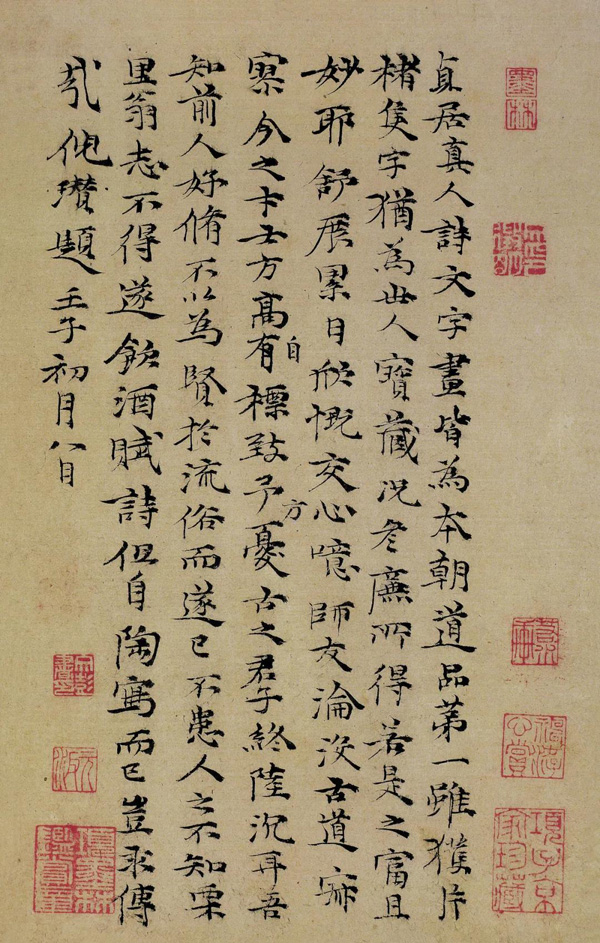 墨林
貞居真人詩文字畫皆為本朝道品第一雖獲片
楮隻字猶為世人寶藏況彥廉所得若是之富且
妙耶舒展累日欣慨交心噫師友淪沒古道寂
寞今之才士方高自有標致予方憂古之君子終陸沉耳吾
知前人好脩不以為賢於流俗而遂已不患人之不知栗
里翁志不得遂飲酒賦詩但自陶寫而已豈求傳
哉倪瓚題壬子初月八日
項子京家珍藏